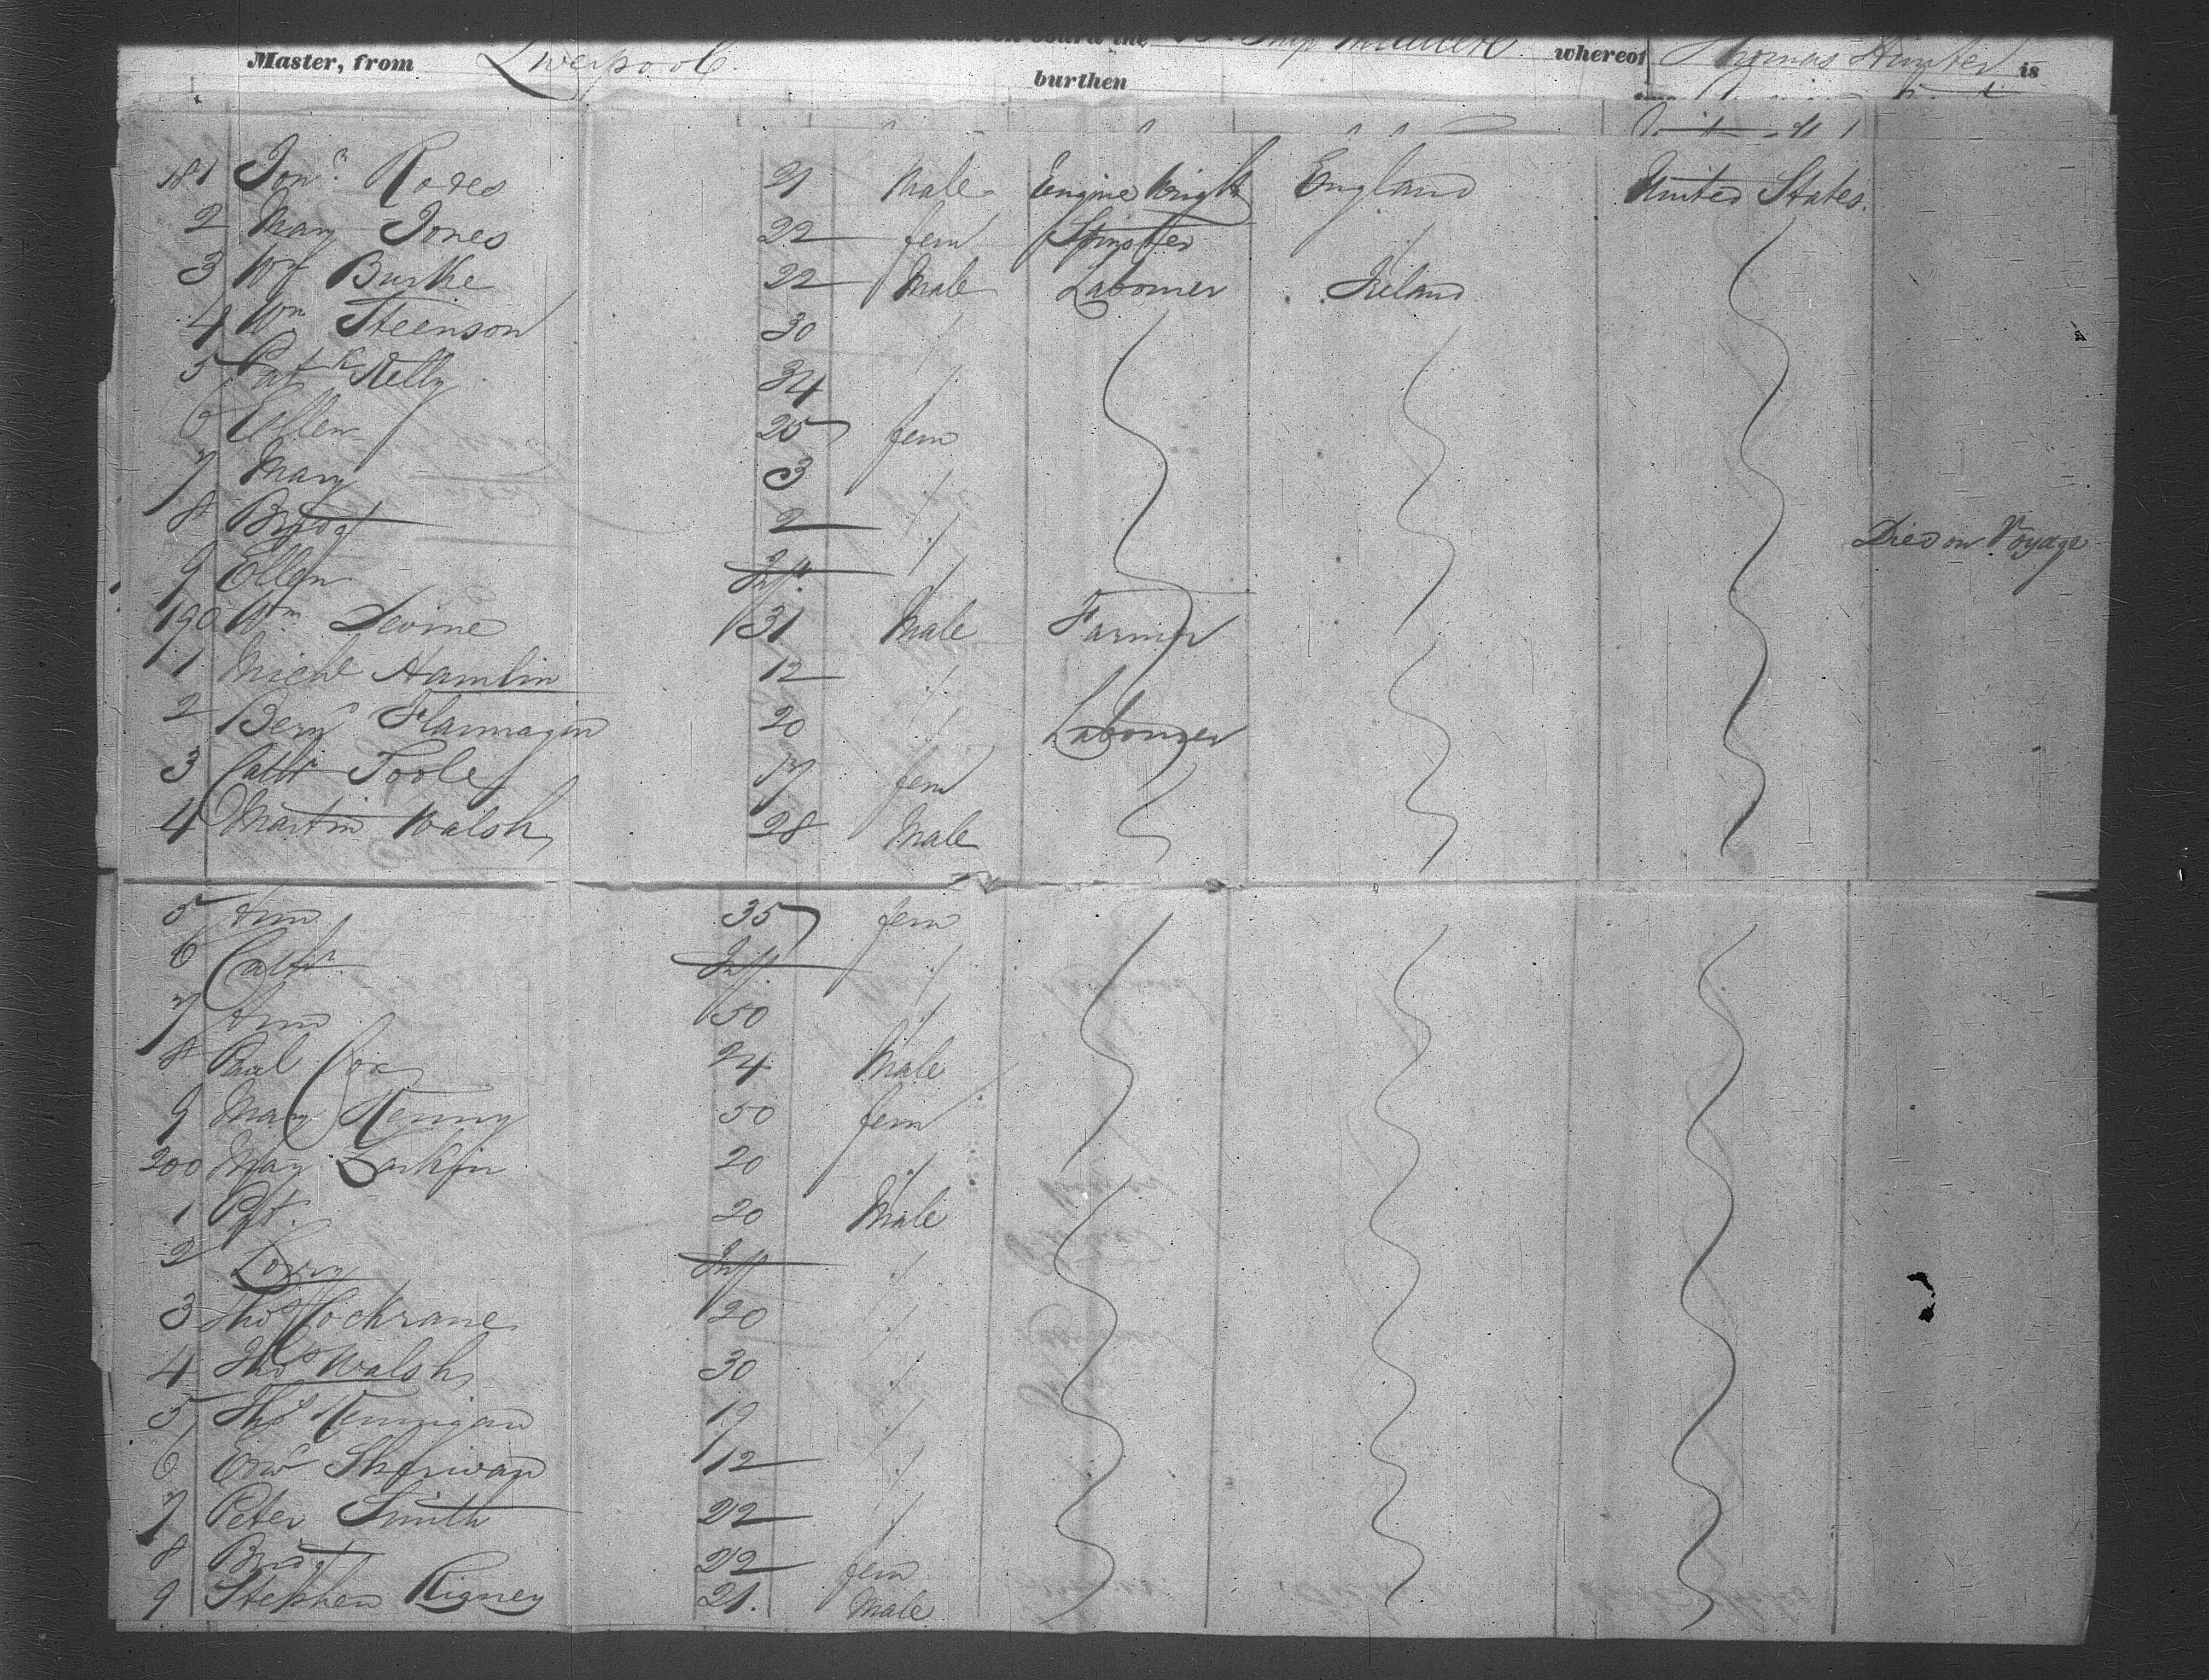 whereof Thomas Hunter is
Master, from Liverpool burthen
181 Jonn. Rodes 21 Male Engine Wright England United States.
2 Mary Jones 22 fem Spinster
3 Wm Burke 22 Male Labourer Ireland
4 Wm Steenson 30
5 Patk Kelly 34
6 Ellen 25 fem
7 Mary 3
8 Bridgt 2 Died on Voyage
9 Ellen Inft.
190 Wm Devine 31 Male Farmer
1 Michl Hamlin 12
2 Benjn Flannagan 20 Labourer
3 Cathr Toole 17 fem
4 Martin Walsh 28 Male
5 Ann 35 fem
6 Cathr Inft
7 Ann 50
8 Paul Cox 24 Male
9 Mary Kenny 50 fem
200 Mary Larkin 20
1 Pat. 20 Male
2 Inft
3 Thos Cochrane 20
4 Thos Walsh 30
5 Thos Kennigan 19
6 Edwd Sheriwan 12
7 Peter Smith 22
8 Bridgt 22 fem
9 Stephen Rigney 21. Male